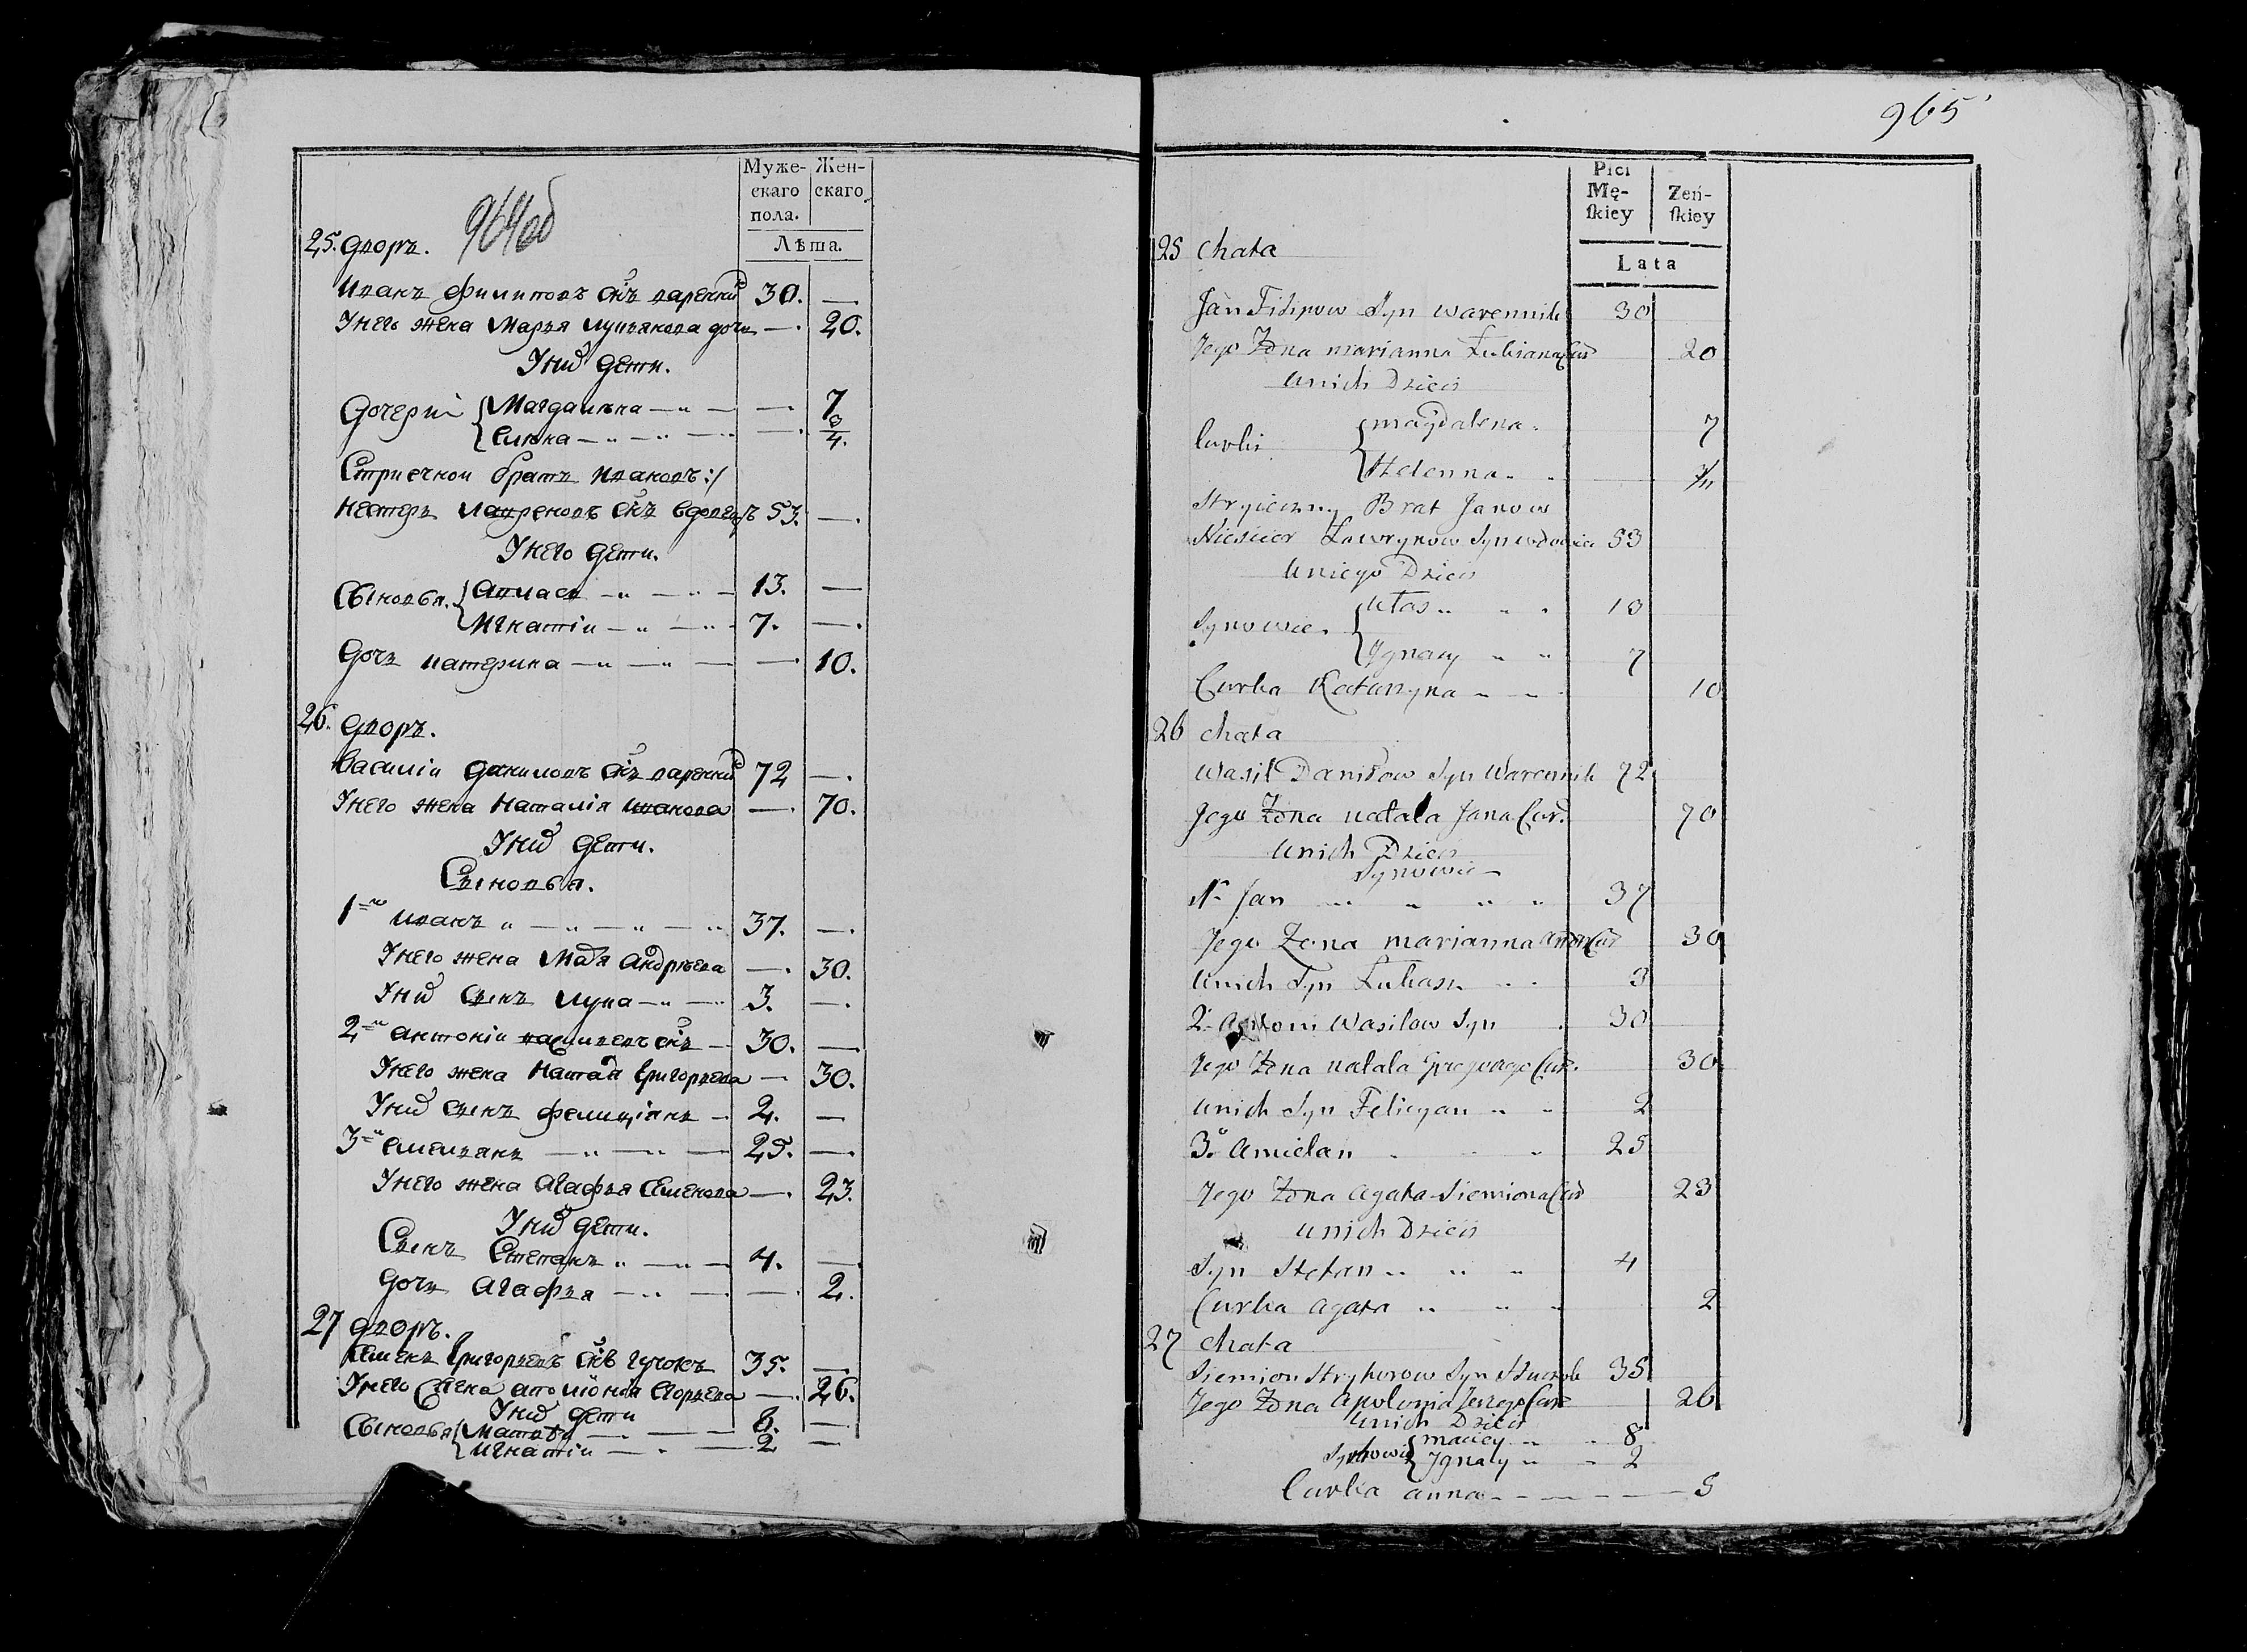 964об
Муже- Жен-
скаго скаго
пола.
Лѣта.
25. дворъ.
Иванъ Филиповъ снъ вареник 30. —
У него жена Марья Лукьянова дочь — 20.
У них дети.
Дочери Магдалѣна — 7
Елѣна — 3/4.
Стриечной братъ Ивановъ:/
Нестеръ Лавреновъ снъ вдовецъ 53. —
У него дети.
Сыновья. Атнасъ 13. —
Игнатіи 7. —
Дочь Катерина — 10.
26. дворъ.
Василіи Даниловъ снъ вареник 72 —
У него жена Наталія Иванова — 70.
У них дети.
Сыновья.
1-и Иванъ 37. —
У него жена Маря Андрѣева — 30.
У них сынъ Лука 3. —
2-и Антоніи Василевъ снъ 30. —
У него жена Наталя Григорьева — 30.
У них сынъ Фелиціанъ 2. —
3-и Емельянъ 25. —
У него жена Агафья Семенова — 23.
У них дети.
Сынъ Степанъ 4. —
Дочь Агафья — 2.
27 дворъ.
Семенъ Григорьевъ снъ 35. —
У него жена Аполонія — 26.
У них дети
Сыновья Матвѣи 8. —
Игнатіи 2 —
965
Pici
Mę- Zeń-
ſkiey ſkiey
Lata
25 Chata
Jan Filipow Syn Warennik 30
Jego Żona Marianna Łukiana Cur 20
Unich Dzieci
Curki Magdalena 7
Helenna
Stryieczny Brat Janow
Niescier Ławrynow Syn wdowiec 53
Uniego Dzieci
Synowie. Utas 13
Ignacy 7
Curka Katarzyna 10
26 Chata
Wasil Daniłow Syn Warennik 72
Jego Żona Natala Jana Cur. 70
Unich Dzieci
Synowie
1. Jan 37
Jego Żona Marianna Andr Cur 30
Unich Syn Łukasz 3
2. Antoni Wasilow Syn 30
Jego Żona Natala Gregorego Cur. 30
Unich Syn Felicyan 2
3. Amielan 25
Jego Żona Agata Siemiona Cur 23
Unich Dzieci
Syn Stefan 4
Curka Agata 2
27 Chata
Siemion Hryhorow Syn 35
Jego Żona Apolonia Jerzego Cur 26
Unich Dzieci
Synowie Maciey 8
Ignacy 2
Curka Anna 5